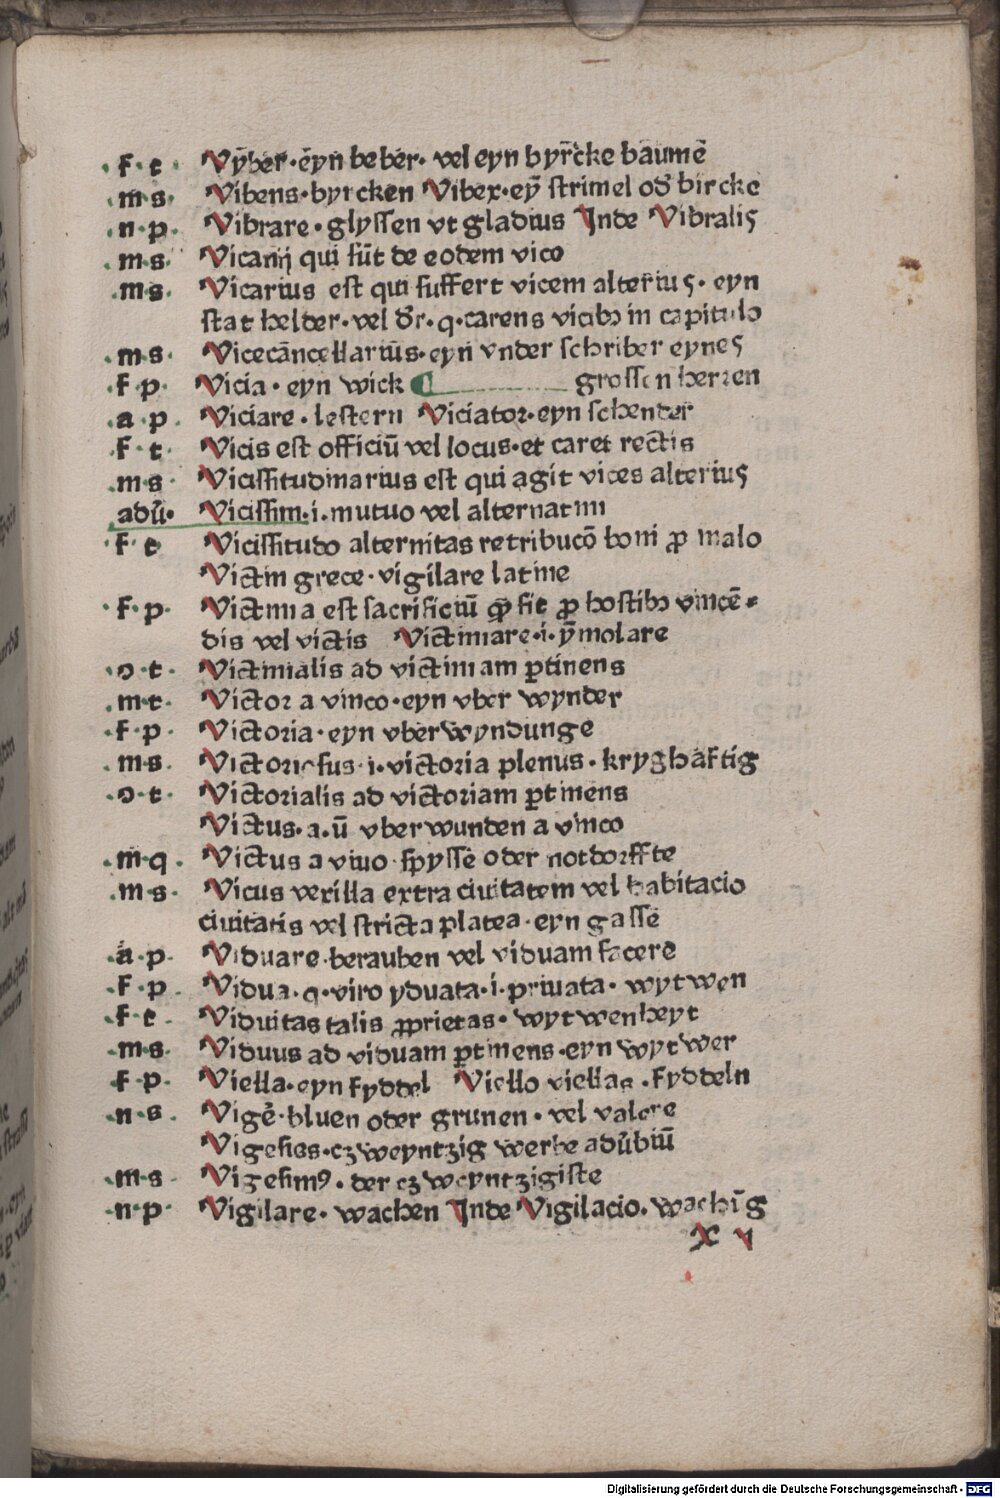 ·f·t· Vÿber·eyn beber· vel eyn byr̄cke baumē
·m·s· Vibens·byrcken Vibex·eyn̄ strimel od̛ bircke
·n·p· Vibrare·glyssen vt gladius Inde Vibralis
·m·s· Vicarij qui sūt de eodem vico
·m·s· Vicarius est qui suffert vicem alterius· eyn
stat helder·vel dr̄·q·carens vicibꝫ in capitulo
·m·s· Vicecācellarius·eyn vnder schriber eynes
·f·p· Vicia·eyn wick ¶ grossen herren
·a·p· Viciare·lestern Viciator·eyn schender
·f·t· Vicis est officiū vel locus·et caret rectis
·m·s· Vicissitudinarius est qui agit vices alterius
adū· Vicissim·i·mutuo vel alternatim
·f·t· Vicissitudo alternitas retribucō boni ꝓ malo
Victin grece·vigilare latine
·f·p· Victima est sacrificiū qꝫ fit ꝓ hostibꝫ vincē⸗
dis vel victis Victimare·i·ȳmolare
·o·t· Victimialis ad victimiam ꝑtinens
·m·t· Victor a vinco·eyn vber wynder
·f·p· Victoria·eyn vberwyndunge
·m·s· Victoriosus·i·victoria plenus·kryghafftig
·o·t· Victorialis ad victoriam ꝑtinens
Victus·a·ū vberwunden a vinco
·m·q· Victus a viuo·spysse oder notdorffte
·m·s· Vicus verilla extra ciuitatem vel habitacio
ciuitatis vel stricta platea·eyn gasse
·a·p· Viduare·berauben vel viduam facere
·f·p· Vidua·q·viro yduata·i·priuata·wytwen
·f·t· Viduitas talis ꝓprietas·wytwenheyt
·m·s· Viduus ad viduam ꝑtinens·eyn wytwer
·f·p· Viella·eyn fyddel Viello viellas·fyddeln
·n·s· Vigē·bluen oder grunen·vel valere
Vigesies·czweyntzig werbe adūbiū
·m·s· Vigesimꝰ·der czweyntzigiste
·n·p· Vigilare·wachen Inde Vigilacio·wachīg
x v
Digitalisierung gefördert durch die Deutsche Forschungsgemeinschaft - DFG